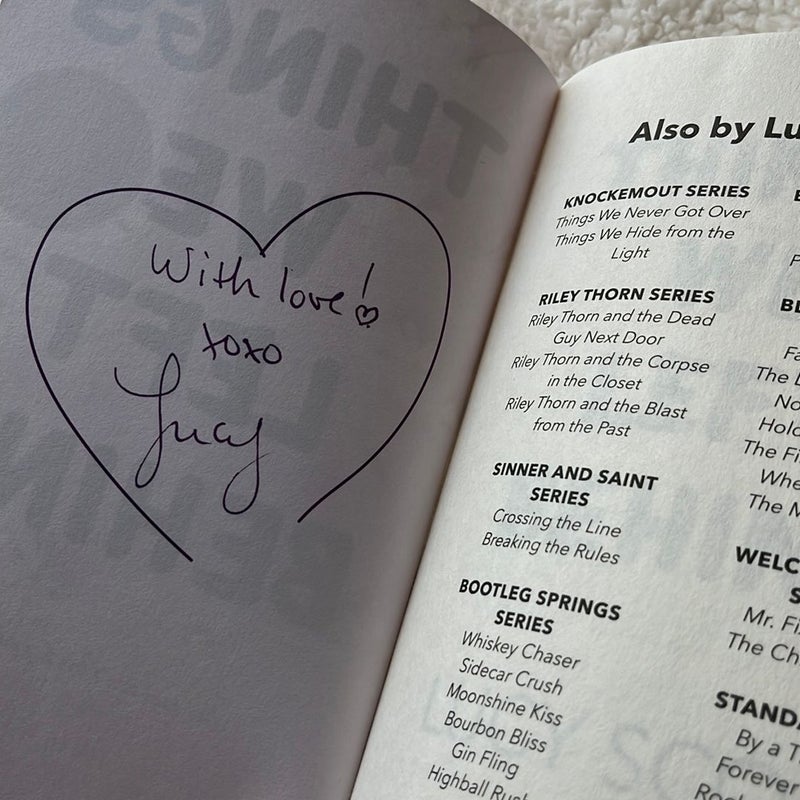 With love!
xoxo
Lucy
Also by Lu
KNOCKEMOUT SERIES
Things We Never Got Over
Things We Hide from the
Light
RILEY THORN SERIES
Riley Thorn and the Dead
Guy Next Door
Riley Thorn and the Corpse
in the Closet
Riley Thorn and the Blast
from the Past
SINNER AND SAINT
SERIES
Crossing the Line
Breaking the Rules
BOOTLEG SPRINGS
SERIES
Whiskey Chaser
Sidecar Crush
Moonshine Kiss
Bourbon Bliss
Gin Fling
Highball Ru
BL
Fa
The
No
Hold
The Fi
Whe
The M
WELC
S
Mr. Fi
The Ch
STANDA
By a T
Forever
THINGS
WE
LEFT